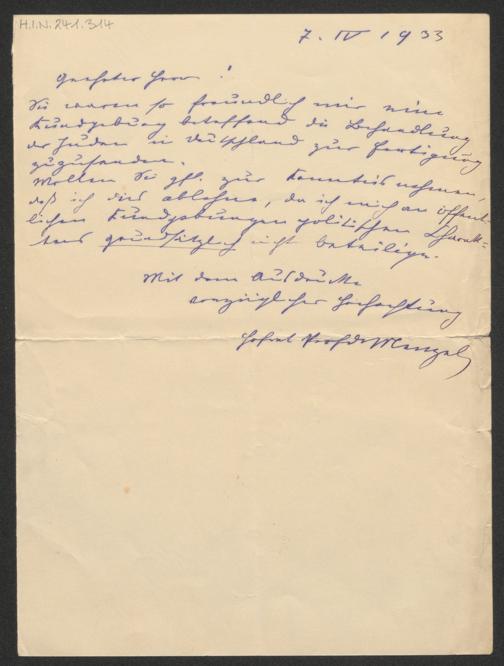 H.I.N. 241.314
7. IV 1933
Geehrter Herr!
Sie waren so freundlich mir eine
Kundgebung betreffend die Behandlung
der Juden in Deutschland zur Fertigung
zuzusenden.
Wollen Sie gfl. zur Kenntnis nehmen,
daß ich dies ablehne, da ich mich an öffent-
lichen Kundgebungen politischen Charak-
ters grundsätzlich nicht beteilige.
Mit dem Ausdrucke
vorzüglicher Hochachtung
Hofrat Prof Dr Menzel